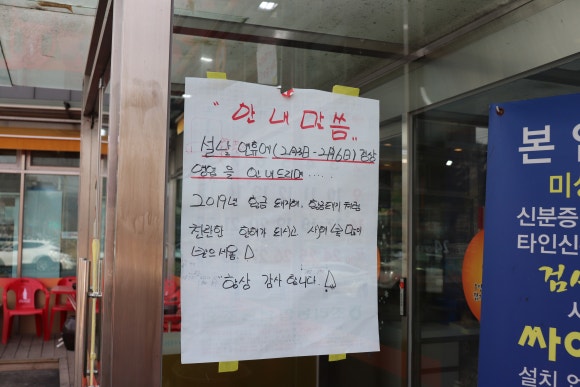 " 안내말씀 "
설날 연휴에(2月3日-2月6日) 정상
영업을 안내드리며 .....
2019년 황금 돼지해, 황금돼지 처럼
찬란한 한해가 되시고
항상 감사합니다.
본
미성
신분증
타인신
검사
싸이
설치